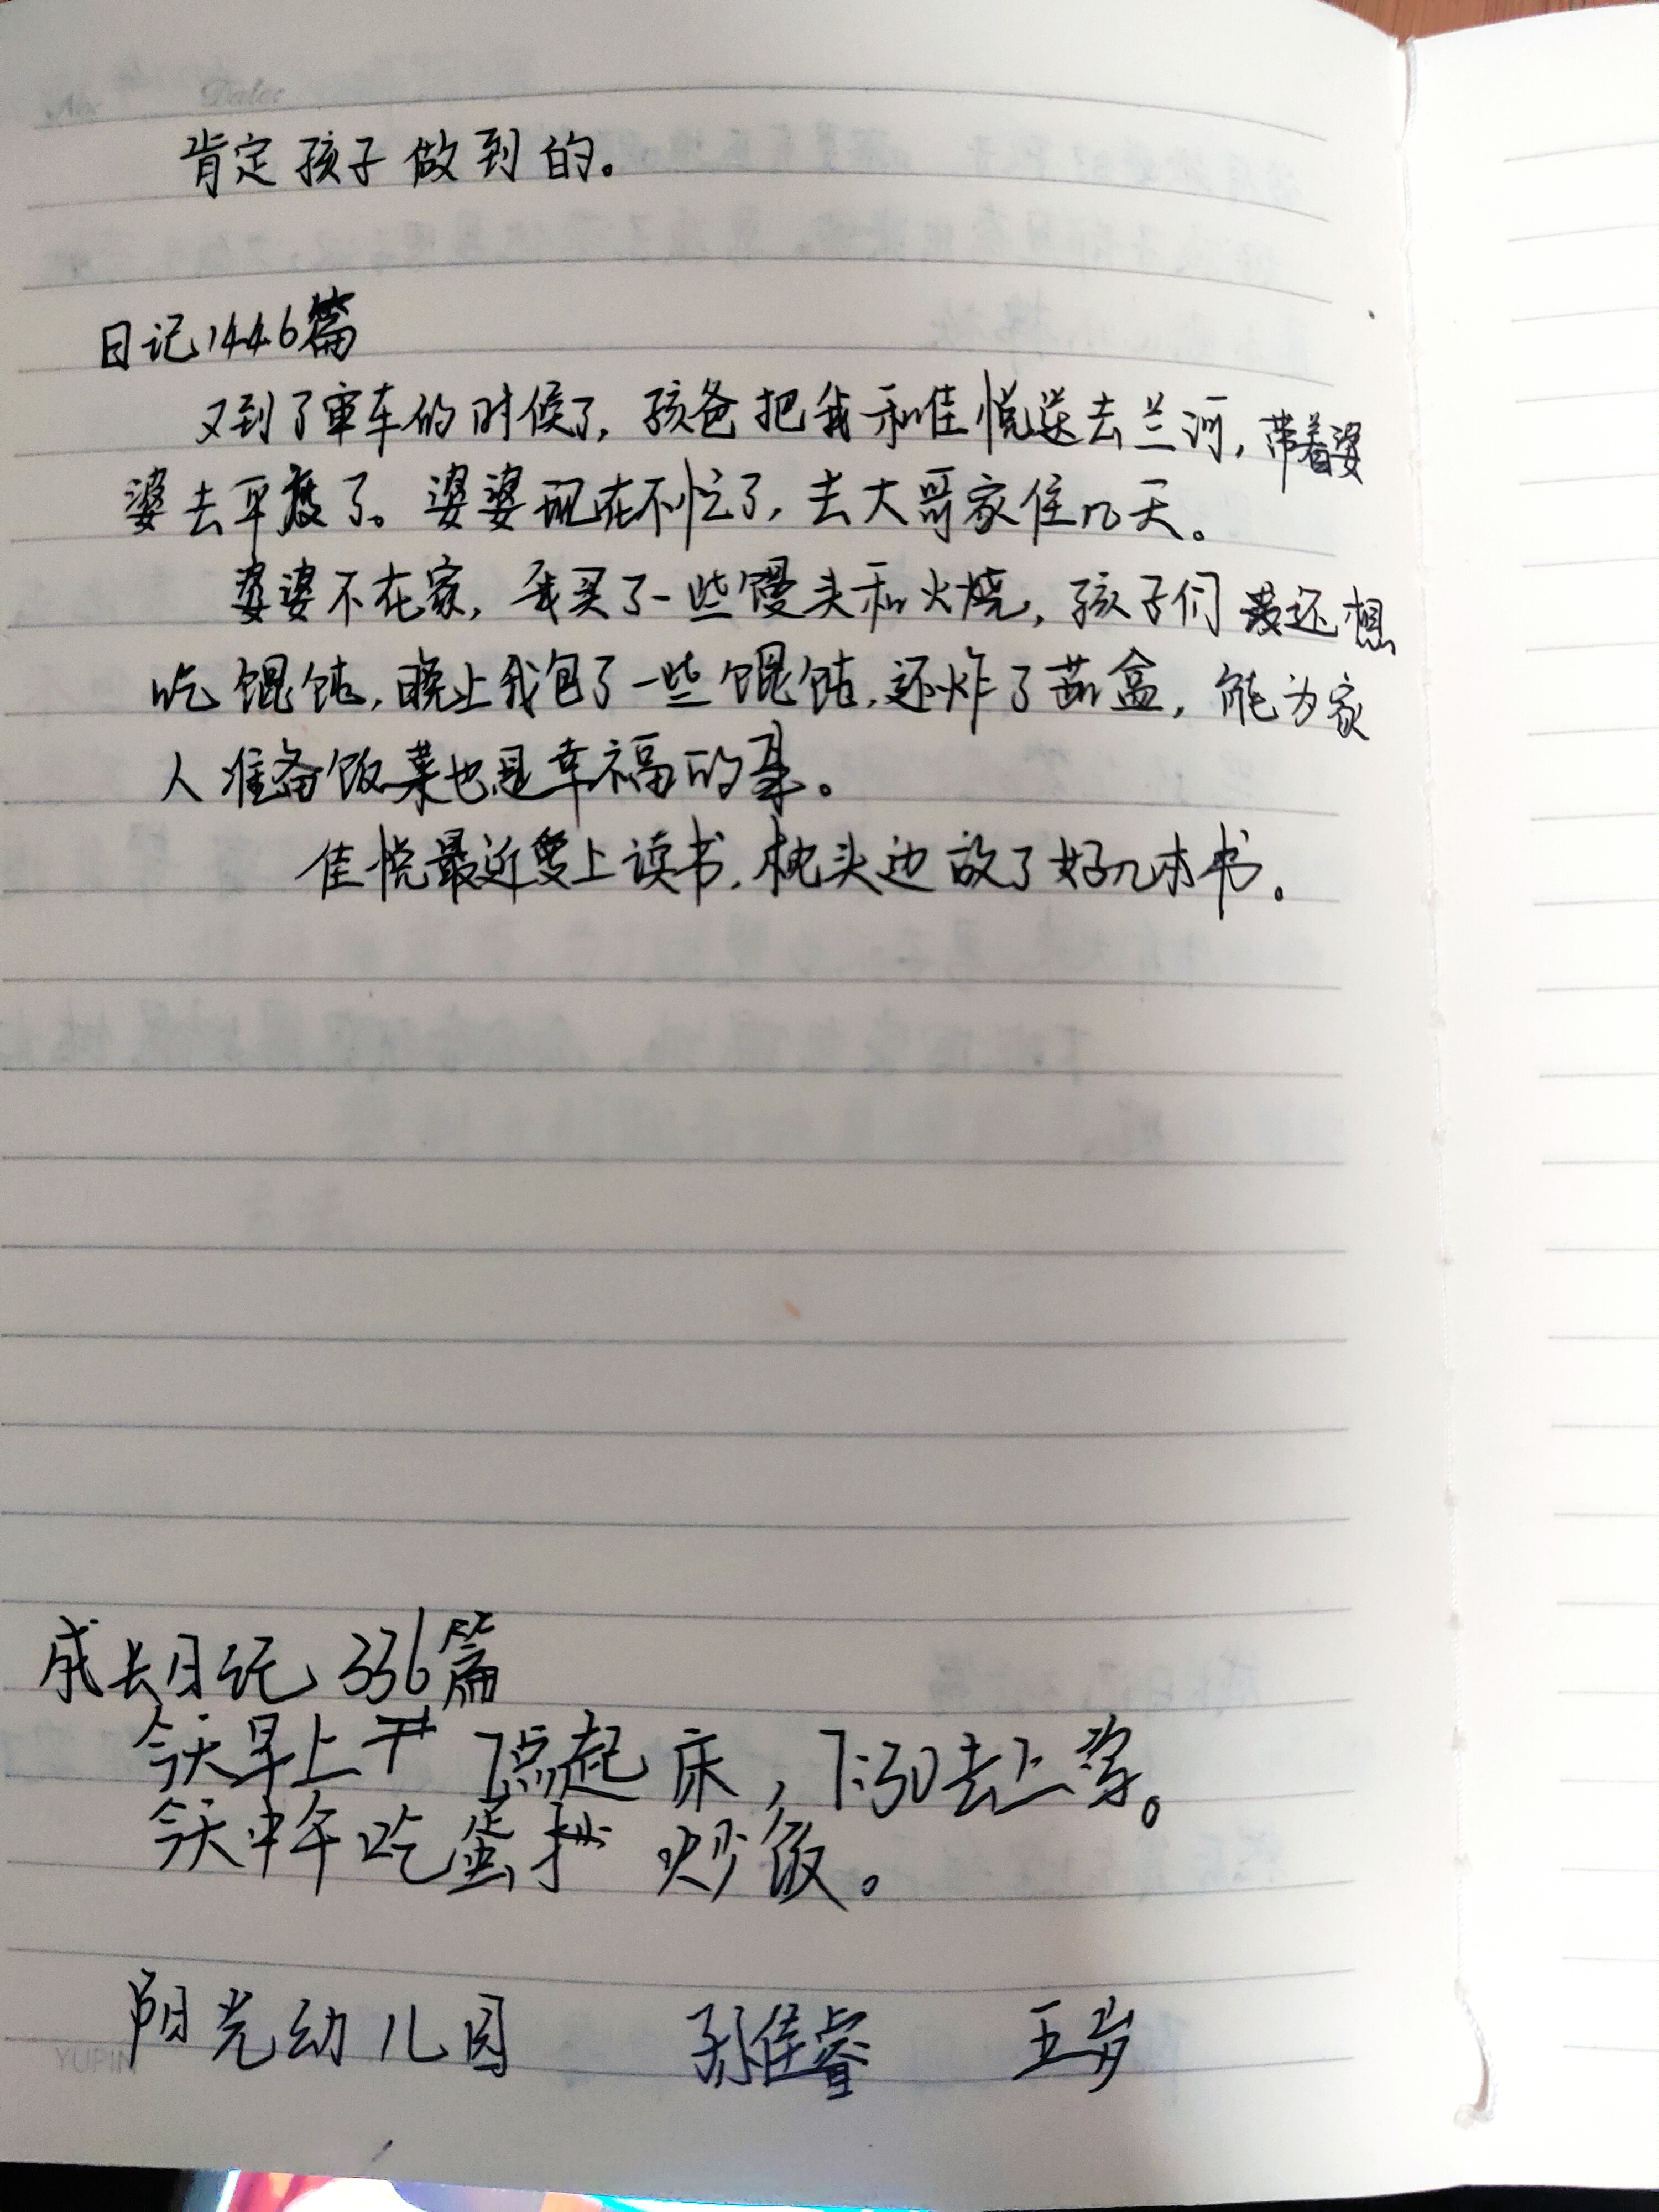 No. Date
肯定孩子做到的。
日记1446篇
又到了审车的时候了，孩爸把我和佳悦送去兰河，带着婆
婆去平度了。婆婆现在不忙了，去大哥家住几天。
婆婆不在家，我买了一些馒头和火烧，孩子们还想
吃馄饨，晚上我包了一些馄饨，还炸了茄盒，能为家
人准备饭菜也是幸福的事。
佳悦最近爱上读书，枕头边放了好几本书。
成长日记336篇
今天早上7点起床，7:30去上学。
今天中午吃蛋炒饭。
阳光幼儿园 孙佳睿 五岁
YUPIN